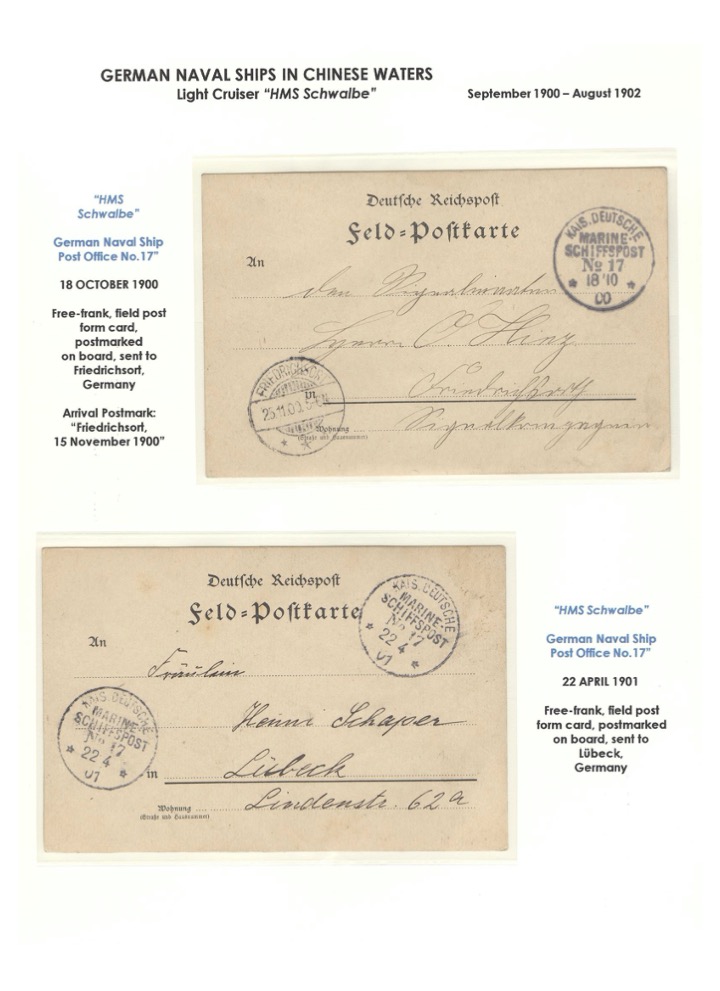 GERMAN NAVAL SHIPS IN CHINESE WATERS
Light Cruiser "HMS Schwalbe"
September 1900 – August 1902
"HMS
Schwalbe"
German Naval Ship
Post Office No.17"
18 OCTOBER 1900
Free-frank, field post
form card,
postmarked
on board, sent to
Friedrichsort,
Germany
Arrival Postmark:
"Friedrichsort,
15 November 1900"
Deutsche Reichspost
Feld=Postkarte
An
KAIS. DEUTSCHE
MARINE-
SCHIFFSPOST
No 17
18 10
00
den
Herrn O. Hinz
FRIEDRICHSORT
25.11.00
in
Friedrichsort
Wohnung
(Straße und Hausnummer)
Deutsche Reichspost
Feld=Postkarte
KAIS. DEUTSCHE
MARINE-
SCHIFFSPOST
No 17
22 4
01
An
Fräulein
Henni Schaper
KAIS. DEUTSCHE
MARINE-
SCHIFFSPOST
No 17
22 4
01
in
Lübeck
Wohnung
(Straße und Hausnummer)
Lindenstr. 62a
"HMS Schwalbe"
German Naval Ship
Post Office No.17"
22 APRIL 1901
Free-frank, field post
form card, postmarked
on board, sent to
Lübeck,
Germany